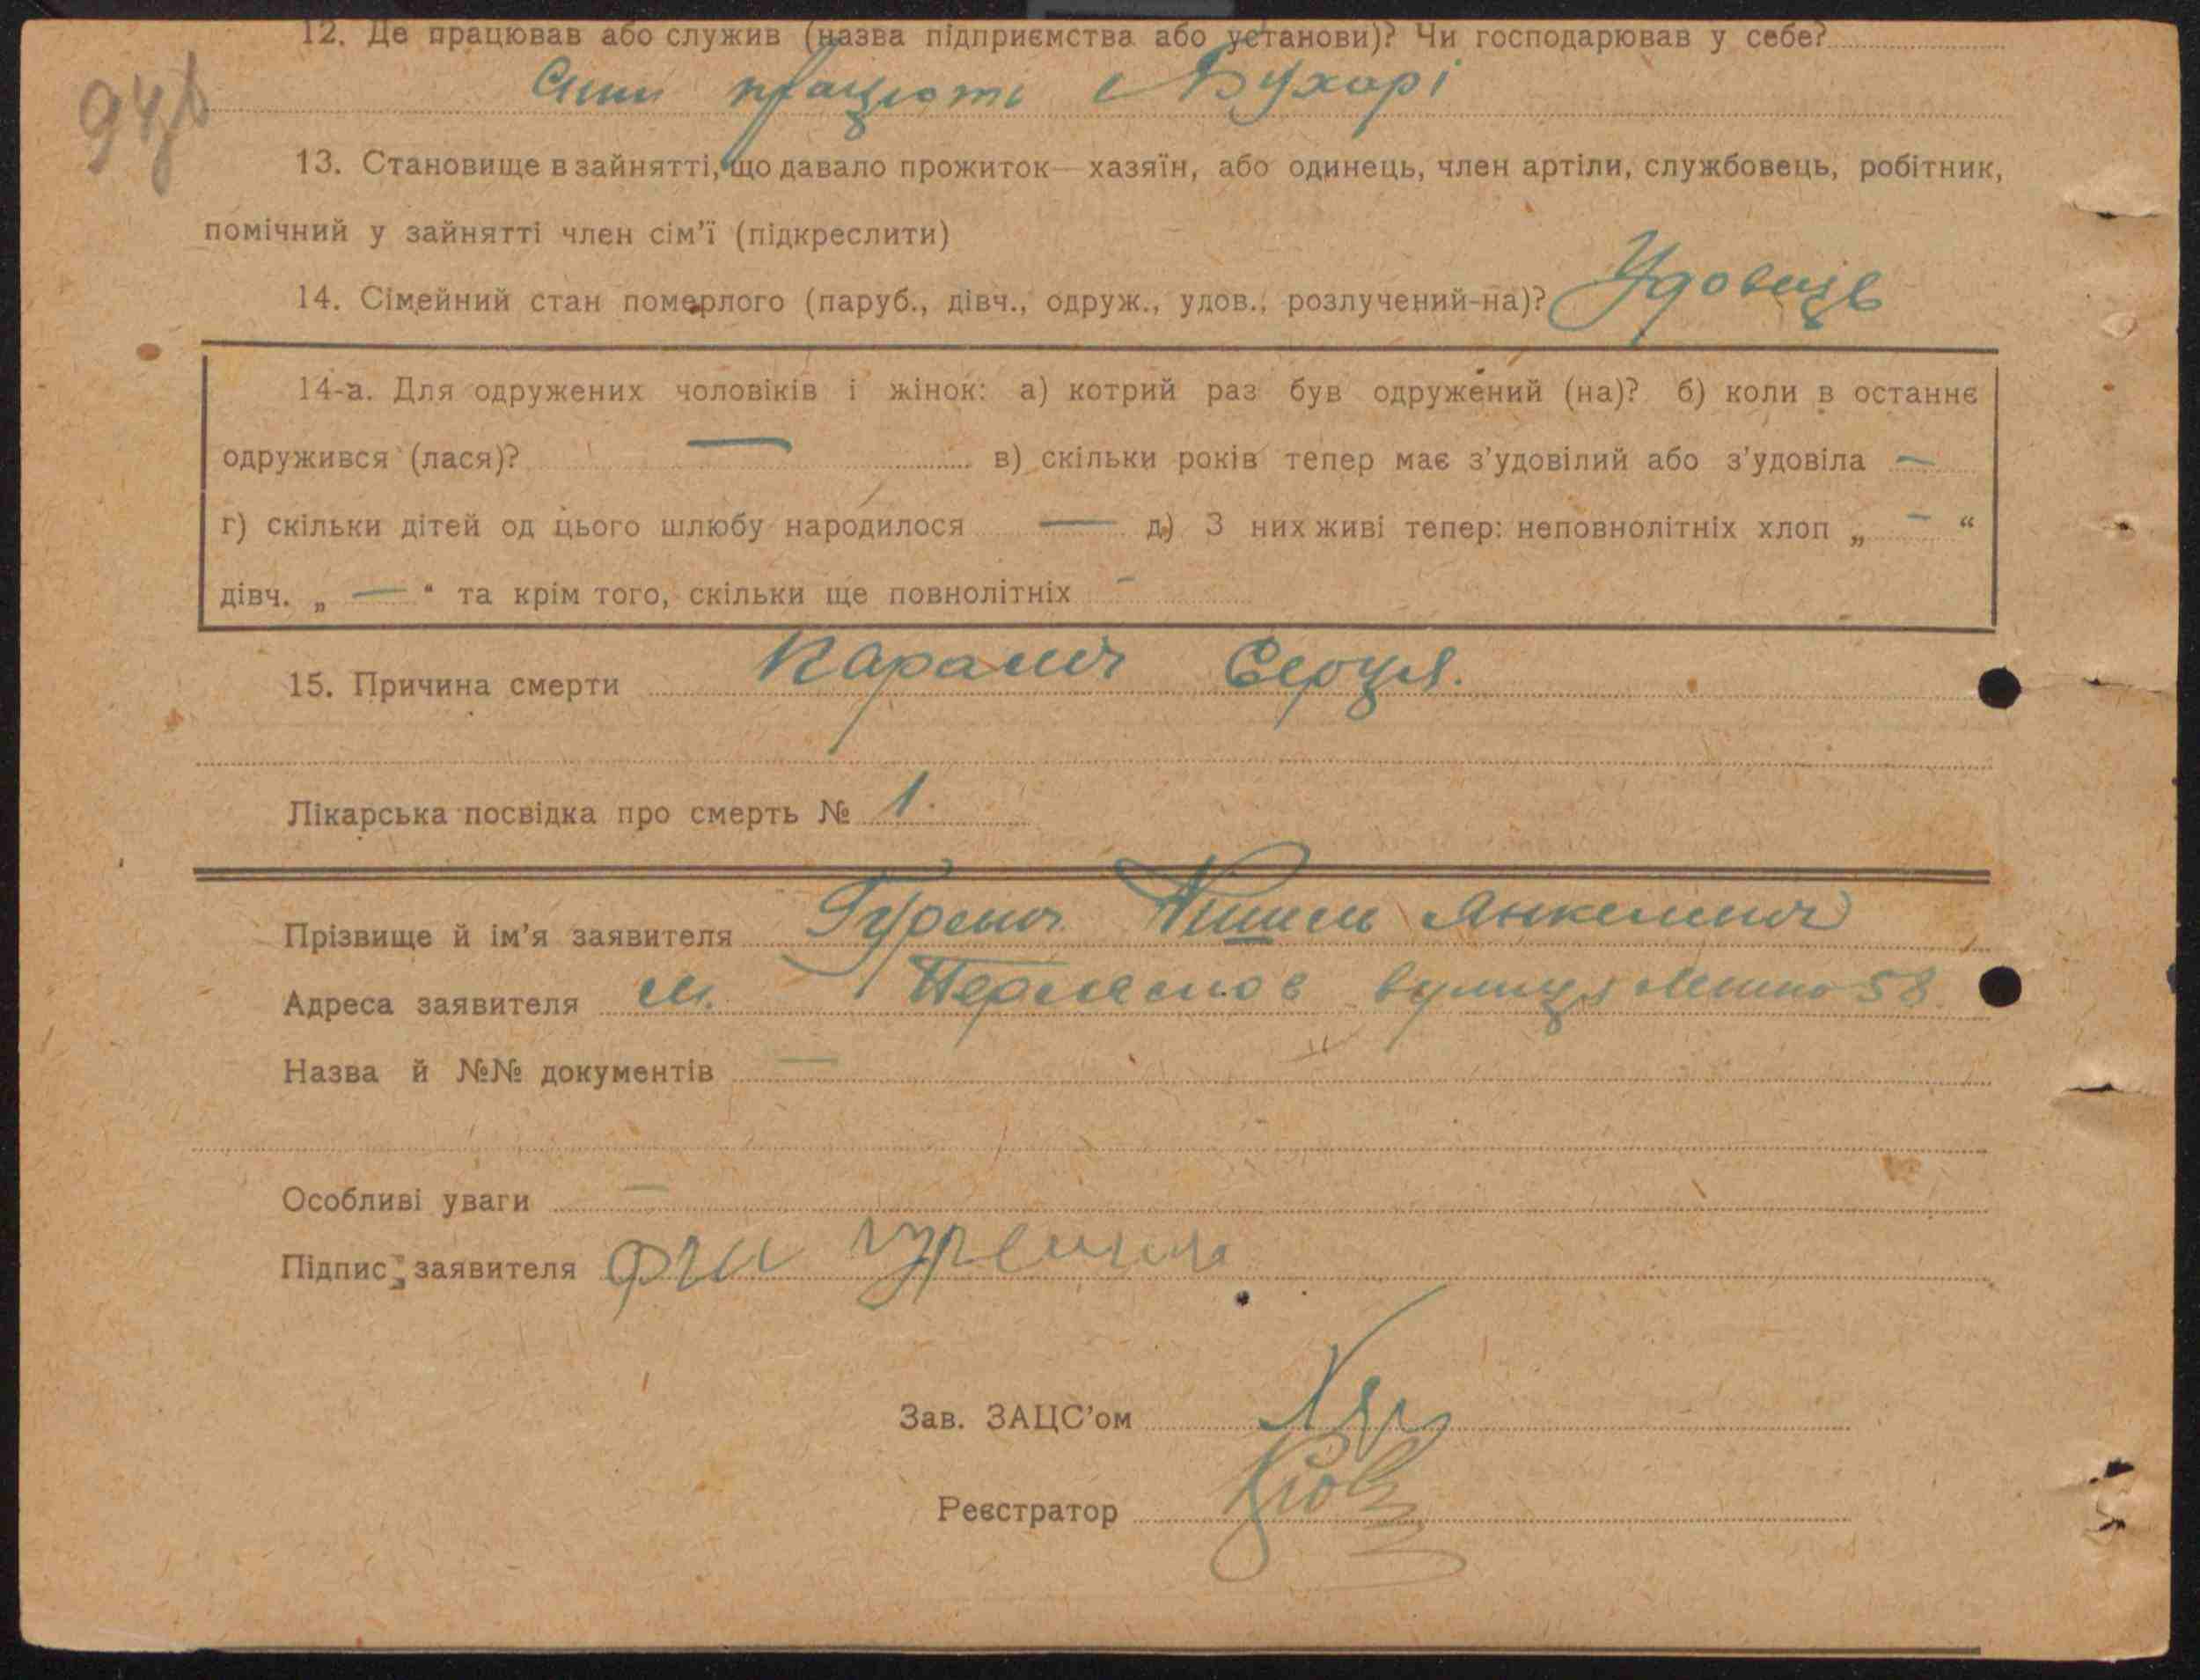 12. Де працював або служив (назва підприємства або установи)? Чи господарював у себе?
94
Сини Бухарі
13. Становище в зайнятті, що давало прожиток—хазяїн, або одинець, член артіли, службовець, робітник,
помічний у зайнятті член сім'ї (підкреслити)
14. Сімейний стан померлого (паруб., дівч., одруж., удов., розлучений-на)? Удовець
14-а. Для одружених чоловіків і жінок: а) котрий раз був одружений (на)? б) коли в останнє
одружився (лася)? — в) скільки років тепер має з'удовілий або з'удовіла —
г) скільки дітей од цього шлюбу народилося — д) З них живі тепер: неповнолітніх хлоп „ — “
дівч. „ — “ та крім того, скільки ще повнолітніх —
15. Причина смерти Параліч Серця.
Лікарська посвідка про смерть № 1.
Прізвище й ім'я заявителя Гуревич Янкелевич
Адреса заявителя м. вулиця 58
Назва й №№ документів —
Особливі уваги —
Підпис заявителя
Зав. ЗАЦС'ом
Реєстратор